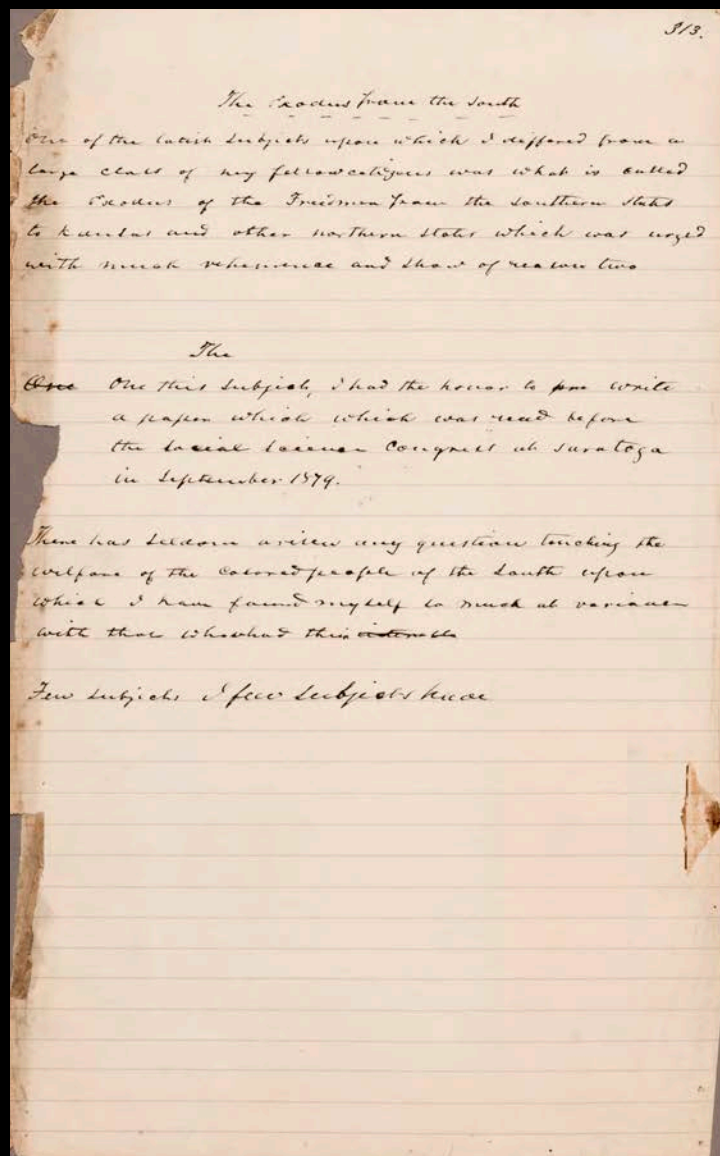 313.
The Exodus from the South
One of the latish subjects upon which I differed from a
large class of my fellowcitizens was what is called
the Exodus of the Freedmen from the southern states
to Kansas and other northern states which was urged
with much vehemence and show of reason two
The
One One this subject, I had the honor to pre write
a paper which which was read before
the Social Science Congress at Saratoga
in September 1879.
There has seldom arisen any question touching the
welfare of the colored people of the South upon
which I have found myself so much at variance
with those who had their interests
Few subjects I few subjects have